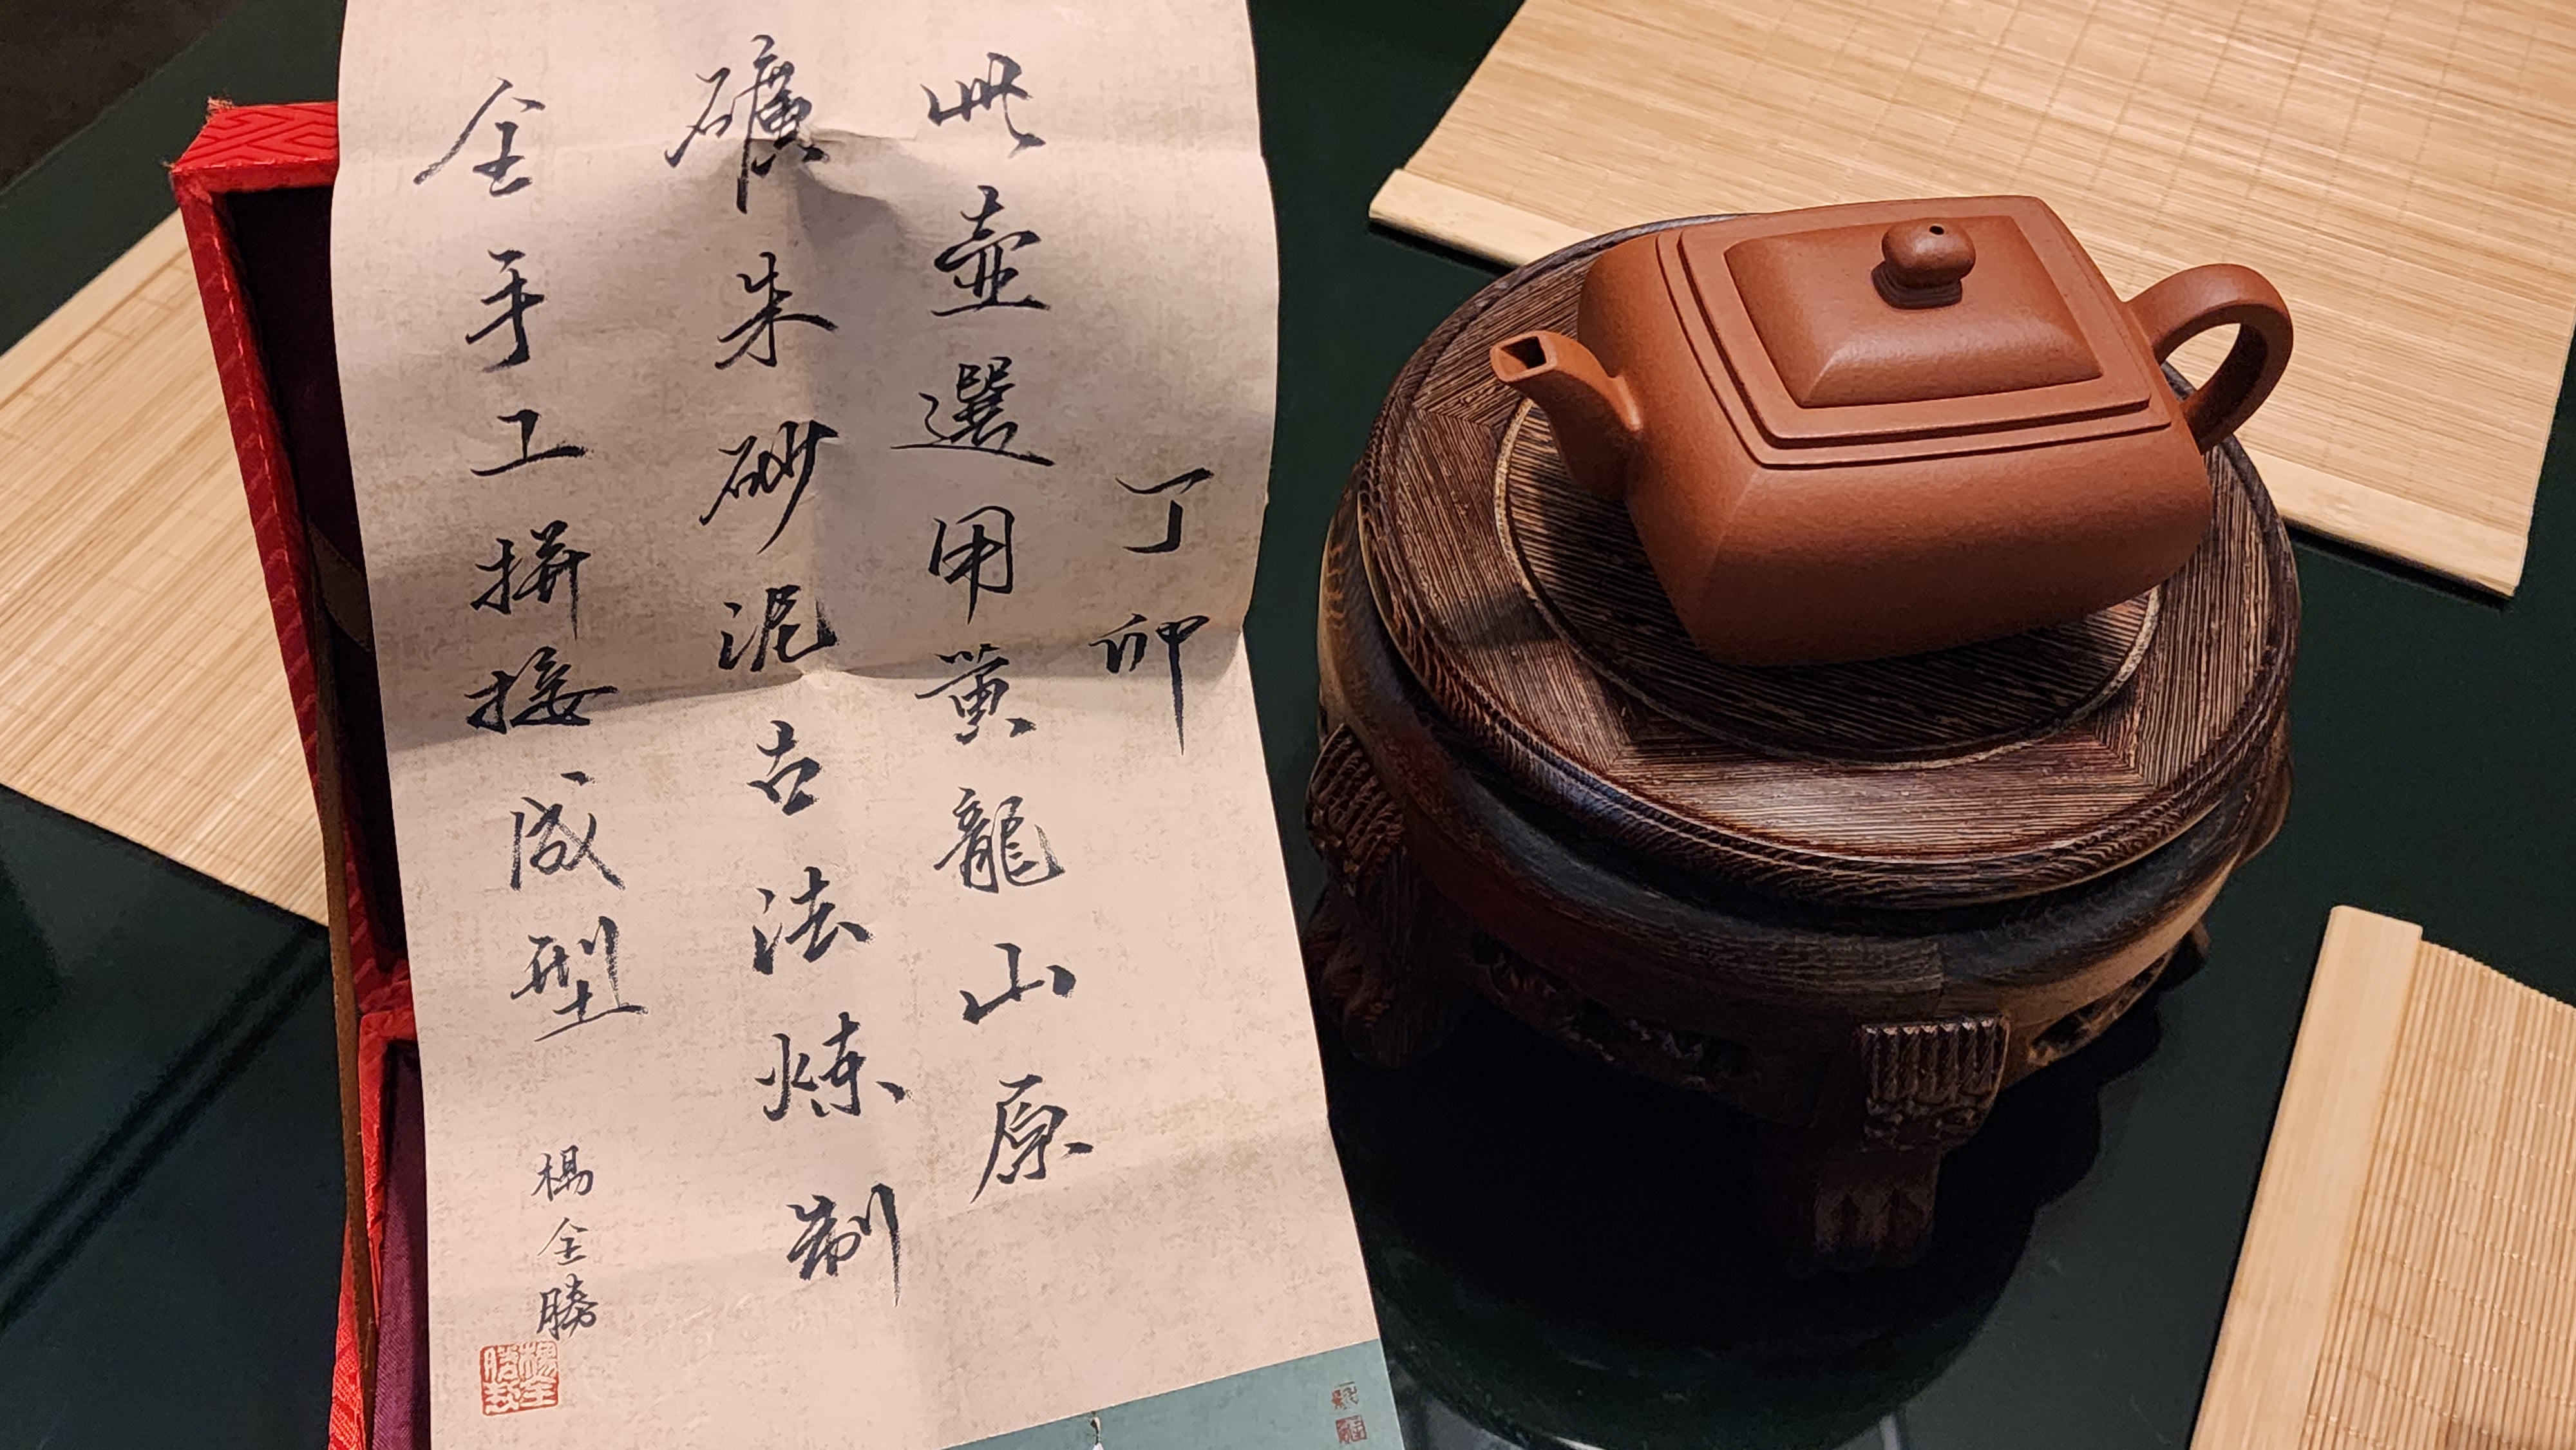 丁卯
此壺選用黃龍山原
礦朱砂泥古法炼制
全手工拼接成型
楊全勝